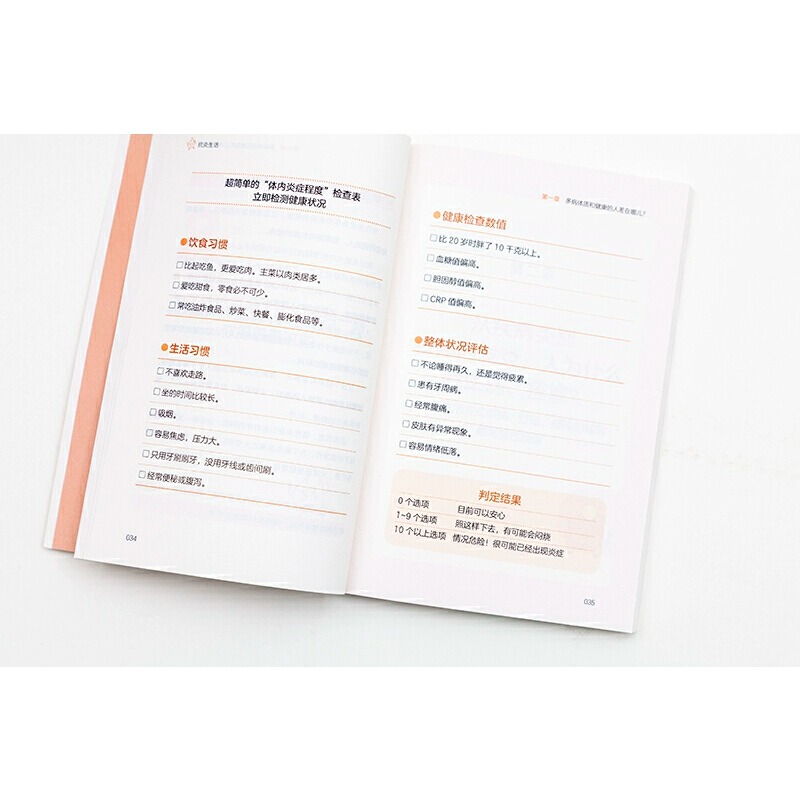 抗炎生活
超简单的“体内炎症程度”检查表
立即检测健康状况
饮食习惯
□比起吃鱼，更爱吃肉。主菜以肉类居多。
□爱吃甜食，零食必不可少。
□常吃油炸食品、炒菜、快餐、膨化食品等。
生活习惯
□不喜欢走路。
□坐的时间比较长。
□吸烟。
□容易焦虑，压力大。
□只用牙刷刷牙，没用牙线或齿间刷。
□经常便秘或腹泻。
034
第一章 多病体质和健康的人差在哪儿？
健康检查数值
□比 20 岁时胖了 10 千克以上。
□血糖值偏高。
□胆固醇值偏高。
□CRP 值偏高。
整体状况评估
□不论睡得再久，还是觉得疲累。
□患有牙周病。
□经常腹痛。
□皮肤有异常现象。
□容易情绪低落。
判定结果
0 个选项 目前可以安心
1~9 个选项 照这样下去，有可能会闷烧
10 个以上选项 情况危险！很可能已经出现炎症
035